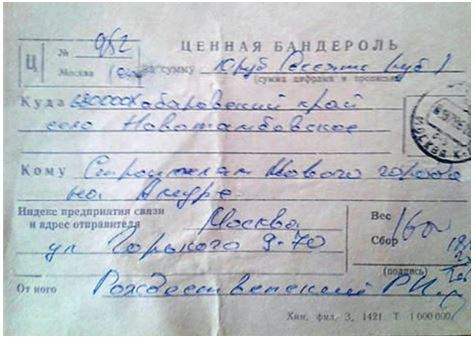 Ц
№ 952
Москва
ЦЕННАЯ БАНДЕРОЛЬ
на сумму 10 руб (Десять руб)
(сумма цифрами и прописью)
Куда 680000 Хабаровский край
село Новотамбовское
Кому Строителям Нового города
на Амуре
Индекс предприятия связи
и адрес отправителя
Москва
ул Горького 9-70
Вес
Сбор
(подпись)
От кого Рождественский Р.И.
Хин. фил. З. 1421 Т 1 000 000